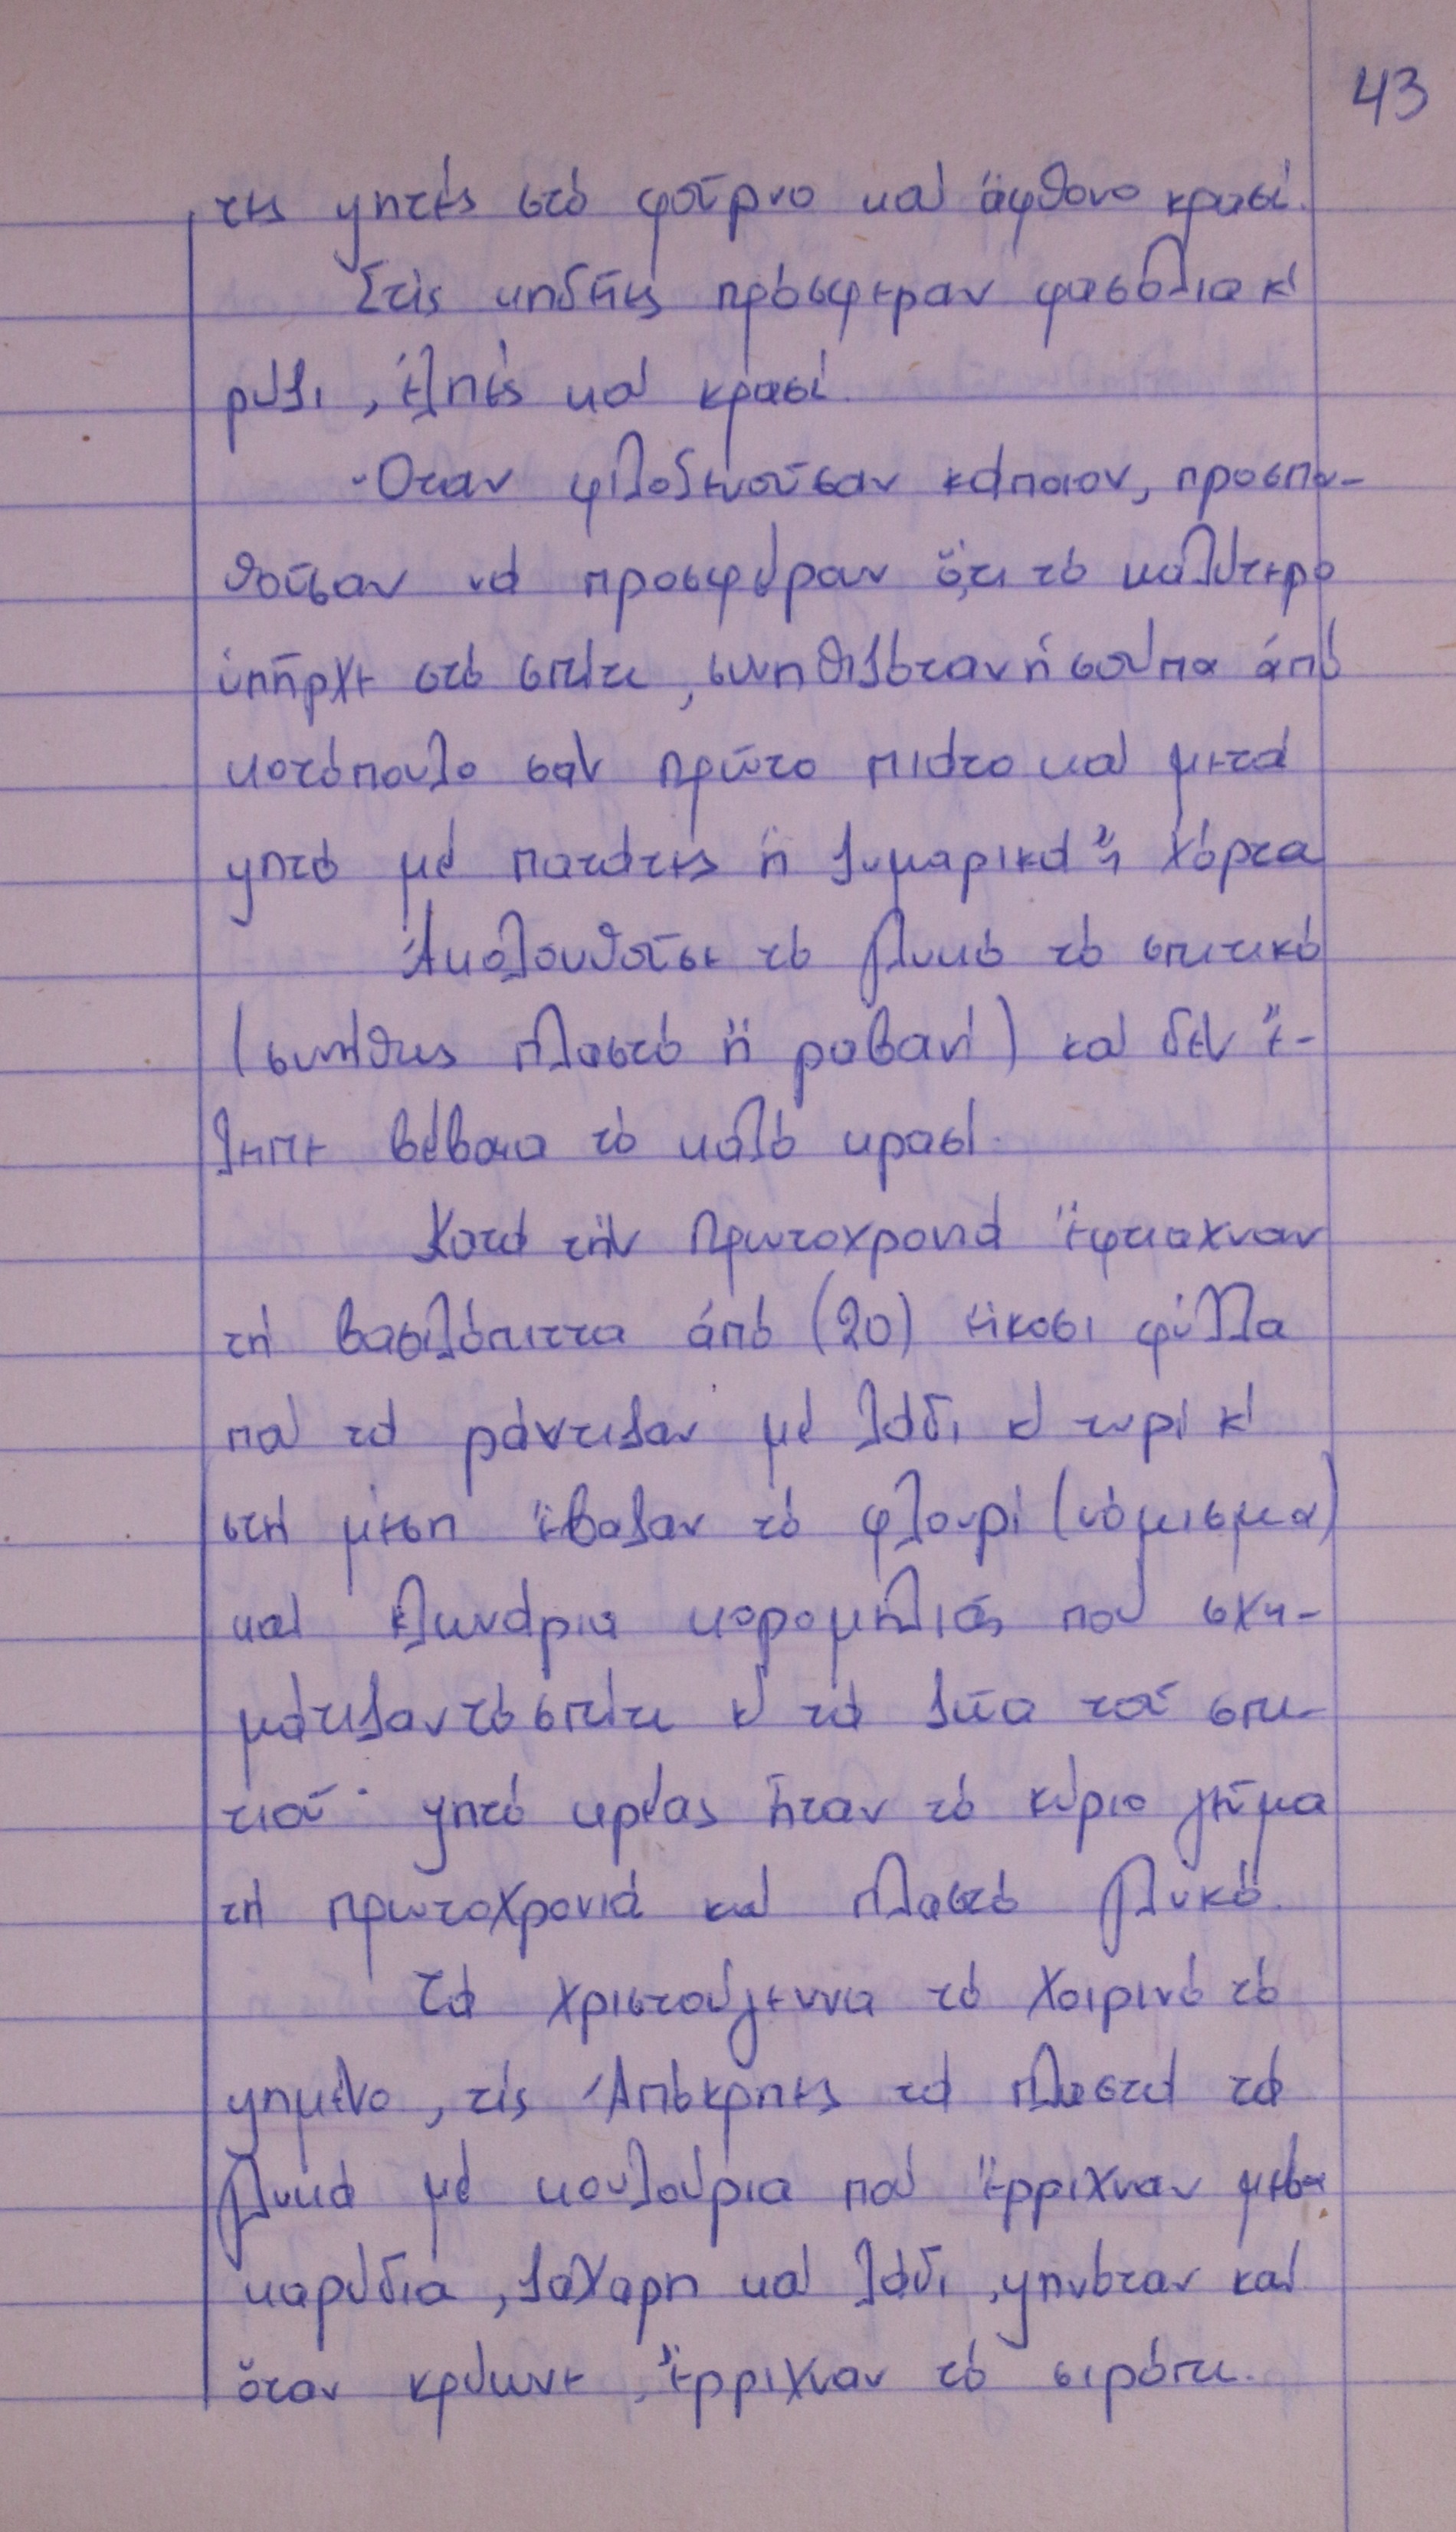 43
τες ψητές στό φοῦρνο καί ἄφθονο κρασί.
Στίς κηδεῖες πρόσφεραν φασόλια κ'
ρύζι, ἐλιές καί κρασί.
Ὅταν φιλοξενοῦσαν κάποιον, προσπα-
θοῦσαν νά προσφέραν ὅ,τι τό καλύτερο
ὑπῆρχε στό σπίτι, συνηθιζόταν ἡ σούπα ἀπό
κοτόπουλο σάν πρῶτο πιάτο καί μετά
ψητό μέ πατάτες ἤ ζυμαρικά ἤ χόρτα
Ἀκολουθοῦσε τό γλυκό τό σπιτικό
(συνήθως πλαστό ἤ ραβανί) καί δέν ἔ-
λειπε βέβαια τό καλό κρασί.
Κατά τήν Πρωτοχρονιά ἔφτιαχναν
τή βασιλόπιττα ἀπό (20) εἴκοσι φύλλα
πού τά ράντιζαν μέ λάδι κ' τυρί κ'
στή μέση ἔβαζαν τό φλουρί (νόμισμα)
καί κλωνάρια κορομηλιάς πού σχη-
μάτιζαν τό σπίτι κ' τά ζῶα τοῦ σπι-
τιοῦ· ψητό κρέας ἦταν τό κύριο γεῦμα
τή πρωτοχρονιά καί πλαστό γλυκό.
Τά Χριστούγεννα τό χοιρινό τό
ψημένο, τίς Ἀπόκρηες τά πλαστά τά
γλυκά μέ κουλούρια πού ἔρριχναν μέσα
καρύδια, ζάχαρη καί λάδι, ψηνόταν καί
ὅταν κρύωνε, ἔρριχναν τό σιρόπι.